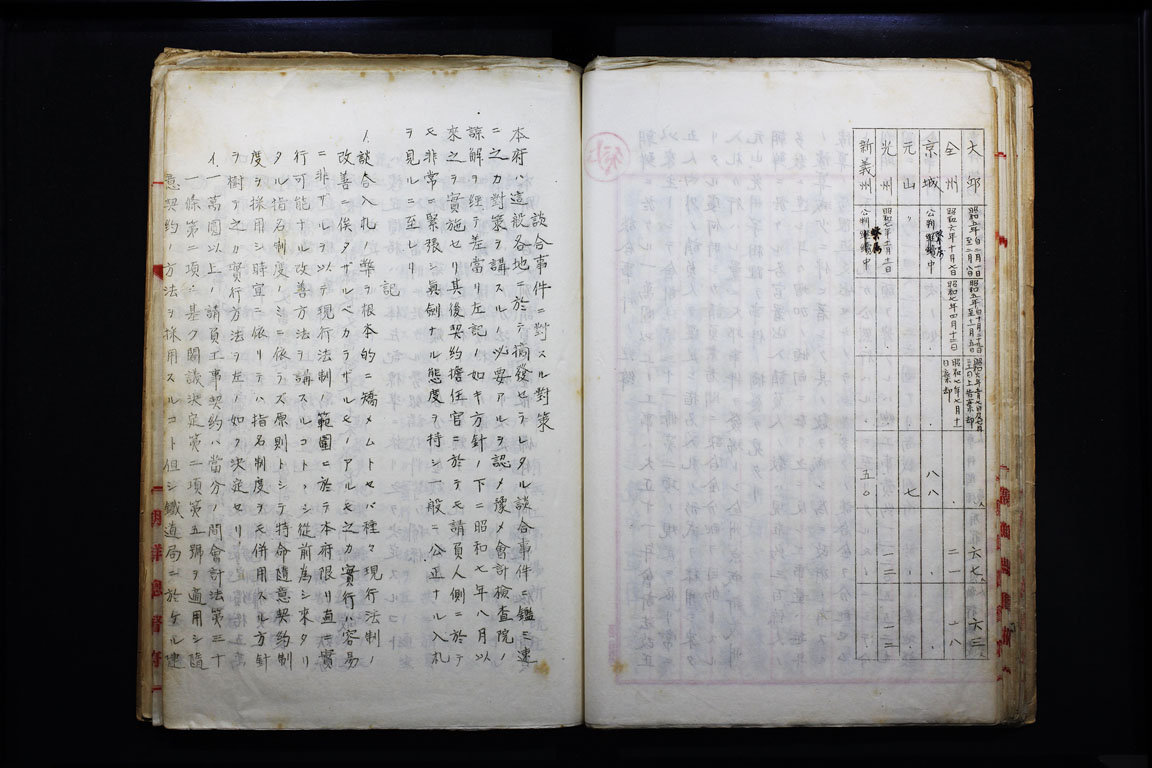 大邱 昭和五年自二月一日至二月八日 昭和五年自十月二十日至十一月五日 六七人 六二人
全州 昭和六年十月七日 昭和七年四月十二日 昭和七年七月十一日棄却 二一 一八
京城 公判繋属中 八八
元山 〃 七
光州 一二 一二
新義州 公判繋属中 五〇
談合事件ニ對スル對策
本府ハ這般各地ニ於テ摘發セラレタル談合事件ニ鑑ミ速
ニ之カ對策ヲ講スルノ必要アルヲ認メ豫メ會計檢査院ノ
諒解ヲ經テ差當リ左記ノ如キ方針ノ下ニ昭和七年八月以
來之ヲ實施セリ其後契約擔任官ニ於テモ請負人側ニ於テ
モ非常ニ緊張シ眞劍ナル態度ヲ持シ一般ニ公正ナル入札
ヲ見ルニ至レリ
記
1.談合入札ノ弊ヲ根本的ニ矯メムトセバ種々現行法制ノ
改善ニ俟タザルベカラザルモノアルモ之カ實行ハ容易
ニ非ザルヲ以テ現行法制ノ範圍ニ於テ本府限リ直ニ實
行可能ナル改善方法ヲ講スルコトヽシ從前爲シ來タリ
タル指名制度ノミニ依ラズ原則トシテ特命隨意契約制
度ヲ採用シ時宜ニ依リテハ指名制度ヲモ併用スル方針
ヲ樹テ之カ實行方法ヲ左ノ如ク決定セリ
イ.一萬圓以上ノ請負工事契約ハ當分ノ間會計法第三十
一條第二項ニ基ク閣議決定第二項第五號ヲ適用シ隨
意契約ノ方法ヲ採用スルコト但シ鐵道局ニ於ケル建